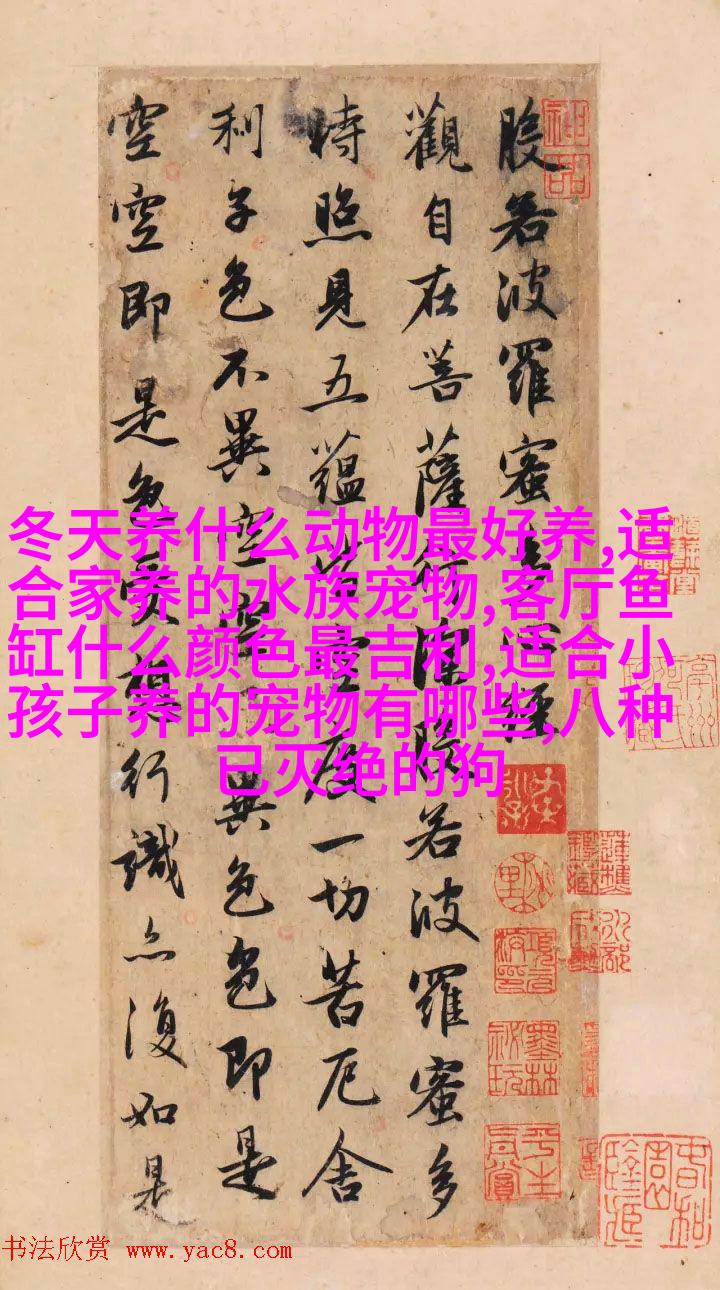 冬天养什么动物最好养,适
合家养的水族宠物,客厅鱼
缸什么颜色最吉利,适合小
孩子养的宠物有哪些,八种
已灭绝的狗
般若波羅蜜多心經
觀自在菩薩行深般若波羅蜜多
時照見五蘊皆空度一切苦厄舍
利子色不異空空不異色色即是
空空即是色受想行識亦復如是
神品
墨林祕玩
书法欣赏 www.yac8.com